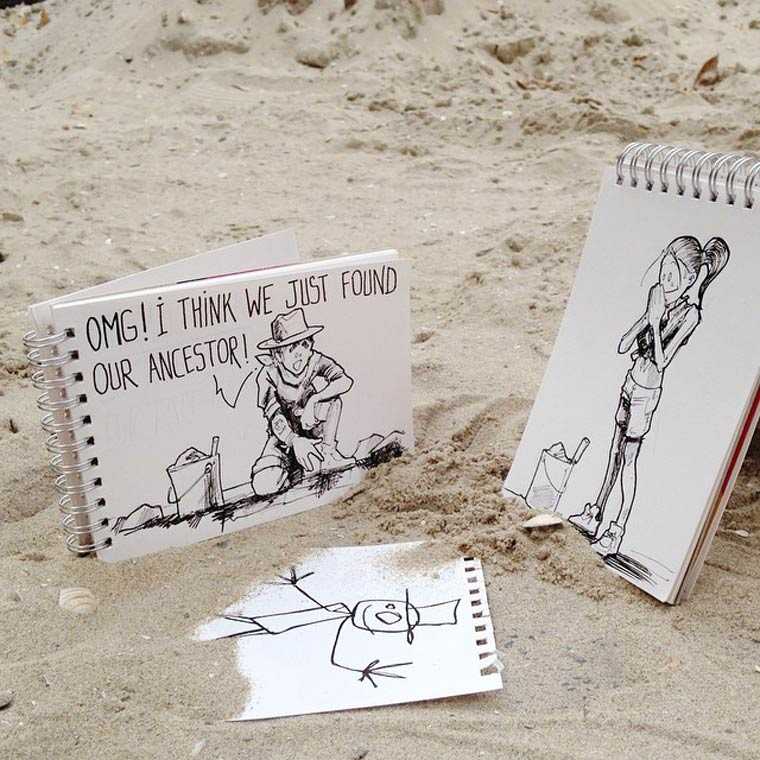 OMG! i THiNK WE JUST FOUND
OUR ANCESTOR!